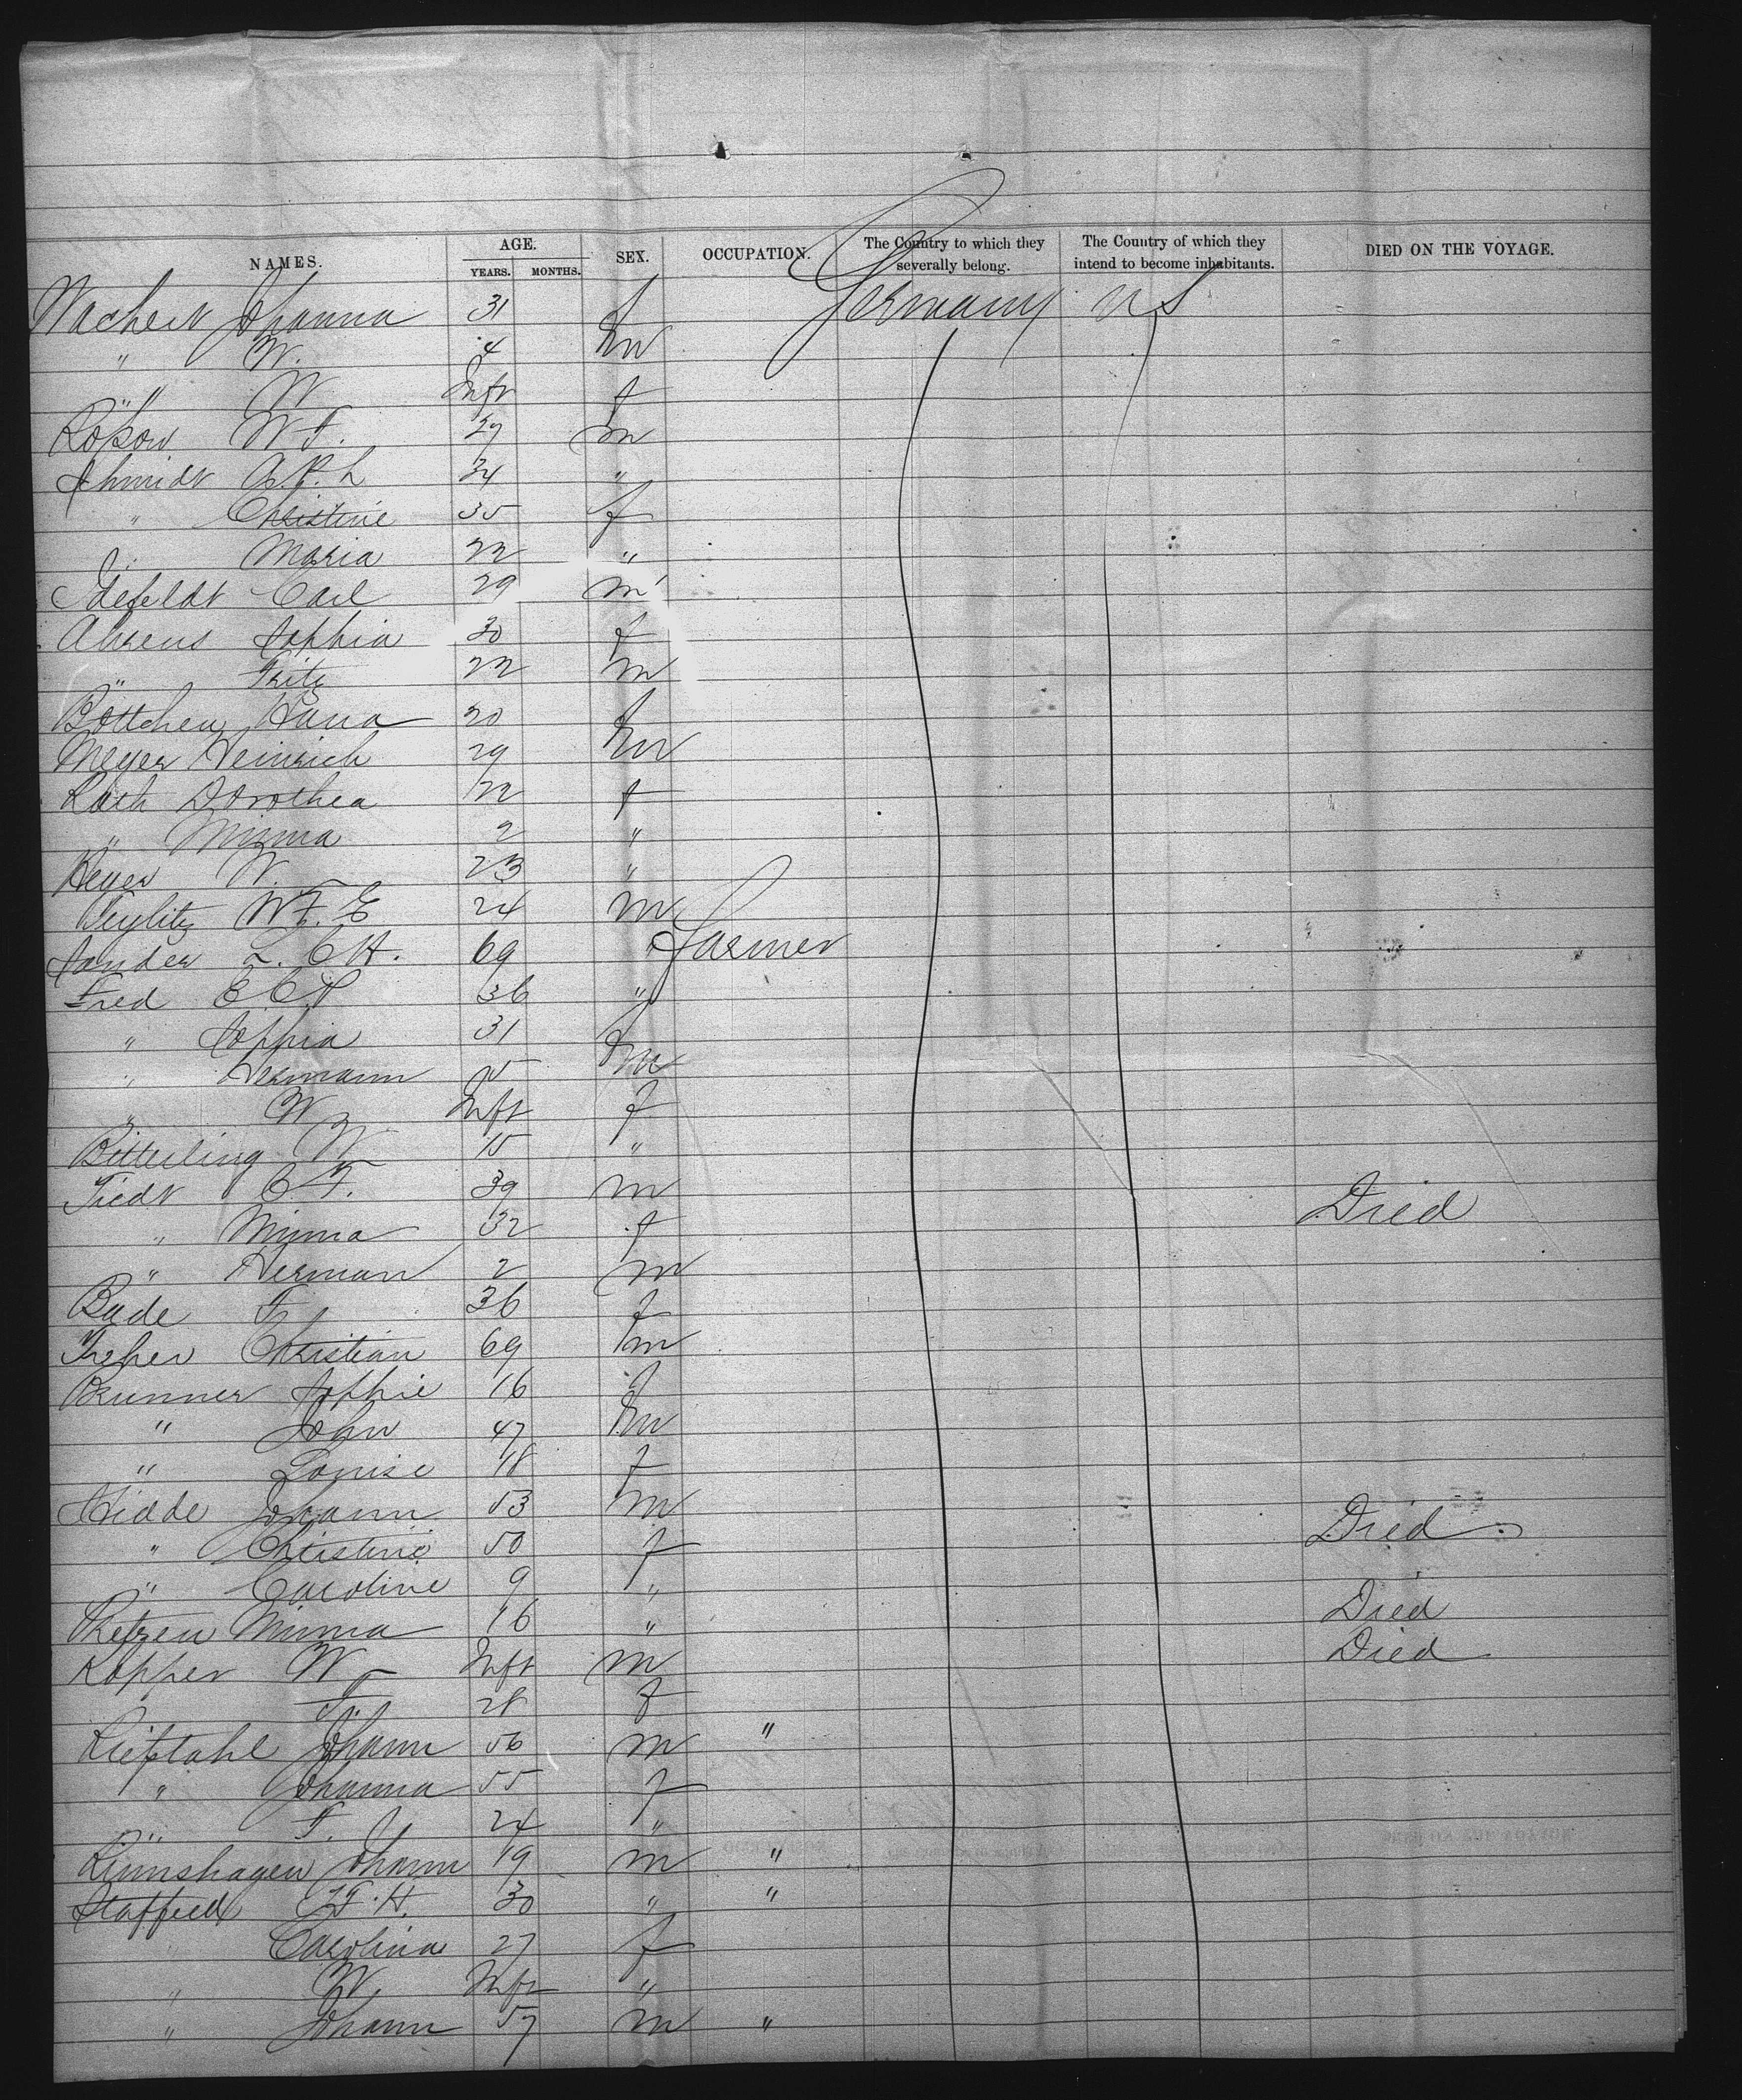 NAMES. AGE. YEARS. MONTHS. SEX. OCCUPATION. The Country to which they severally belong. The Country of which they intend to become inhabitants. DIED ON THE VOYAGE.
Wachert Johanna 31 f Germany U S
" W. 4 m
" W Inft f
W F. 27 m
Schmidt A. P. L 34 "
" Christine 35 f
" Maria 22 "
Idefeldt Carl 29 m
Ahrens Sophia 30 f
" Fritz 22 m
Böttcher Hana 20 f
Meyer Heinrich 29 m
Rath Dorothea 22 f
" Minna 2 "
Heyer W. 23 "
W F. E 24 m
Sander L. C H. 69 Farmer
Fred E C P 36 " "
" Sophia 31 f
" Hermann 5 m
" W Inft f
Bitterling W 15 "
Tiedt C F. 39 m Died
" Minna 32 f
" Herman 2 m
Bade F 36 f
Christian 69 m
Brunner Sophie 16 f
" John 47 m
" Louise 18 f
Hidde Johann 53 m Died
" Christine 50 f
" Caroline 9 " Died
Minna 16 " Died
Kopper W Inft m
F. 28 f
Rieftahl Johann 56 m "
" Johanna 55 f
" F. 24 "
Rimshagen Johann 19 m "
F. H. 30 " "
" Carolina 27 f
" W Inft "
" Johann 57 m "